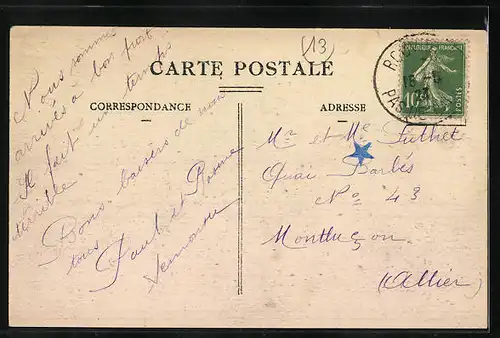 (13)
CARTE POSTALE
CORRESPONDANCE
ADRESSE
Nous sommes
arrivés à bon port
Il fait un temps
terrible.
Bons baisers de nous
tous
Paul et
REPUBLIQUE FRANÇAISE
10c
POSTES
Mr et Me
Quai Barbès
No 43
Montluçon
(Allier)